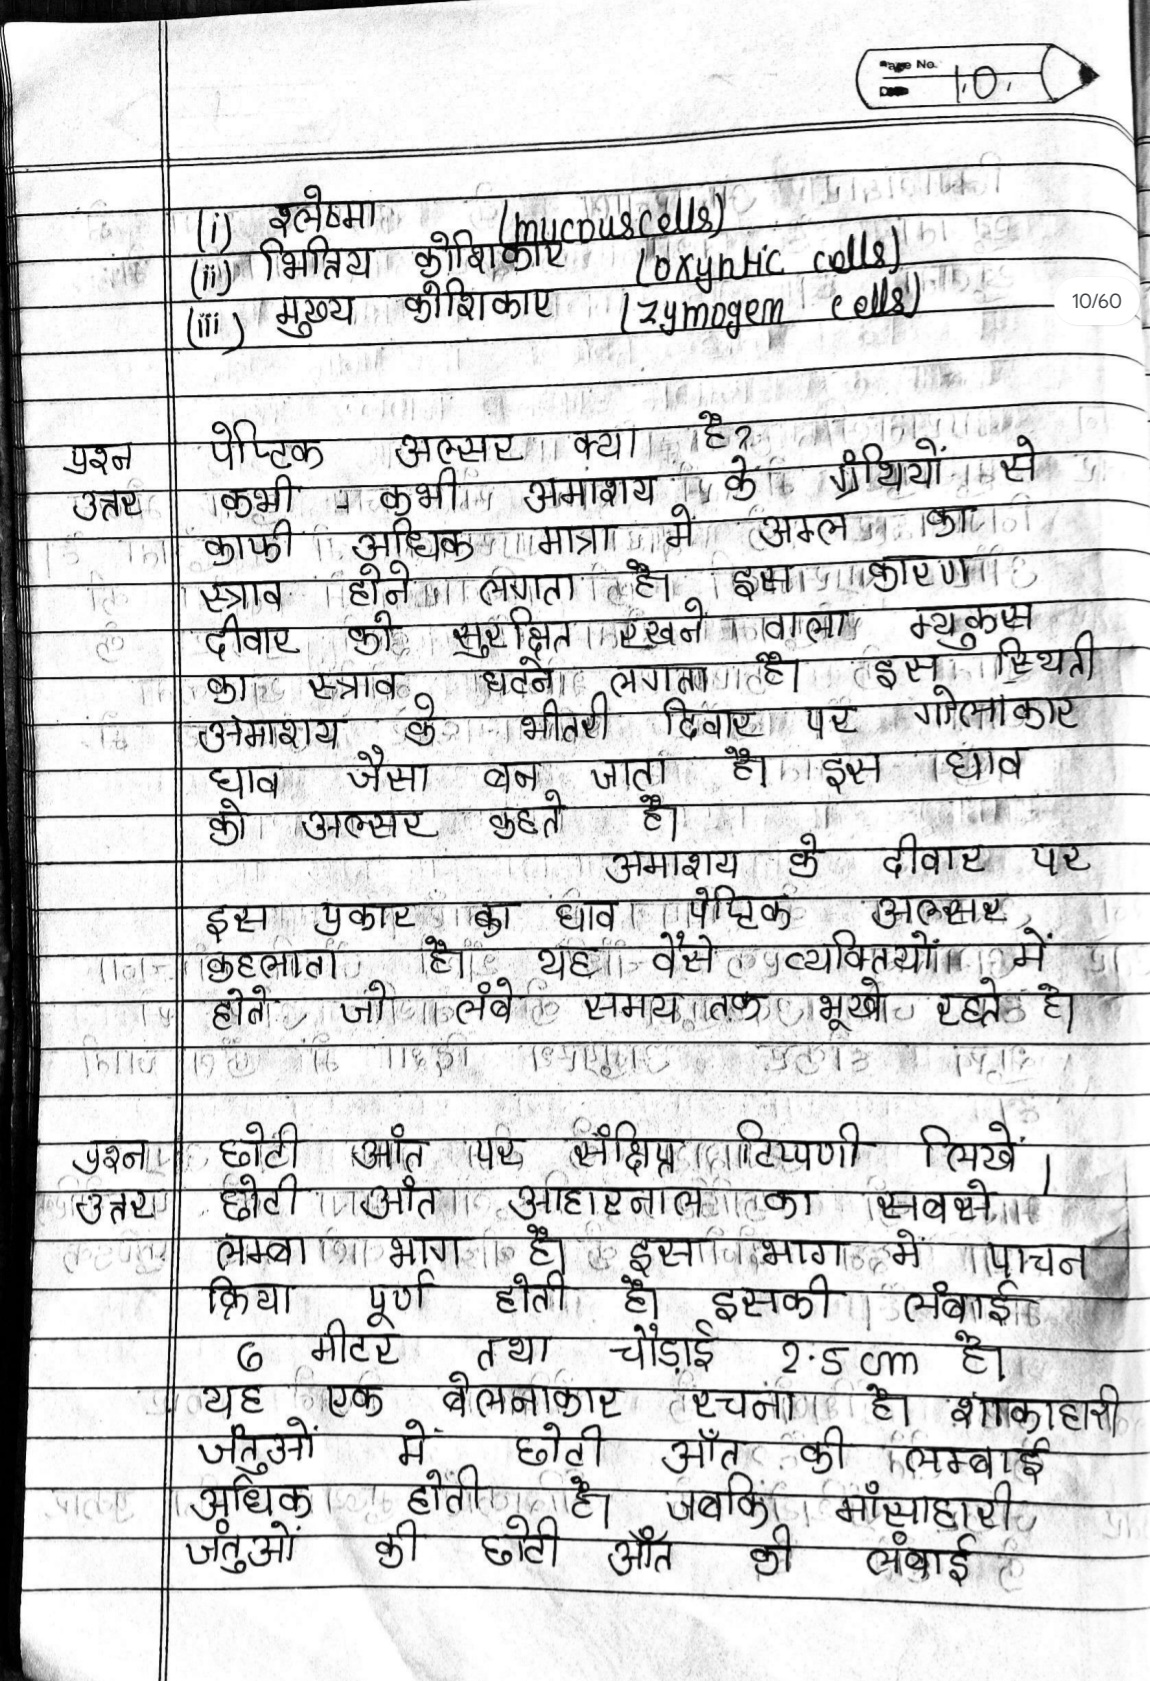 Page No. 10.
(i) श्लेष्मा (mucouscells)
(ii) भित्तिय कोशिकाएँ (oxyntic cells)
(iii) मुख्य कोशिकाए (zymogem cells)
10/60
प्रश्न पेप्टिक अल्सर क्या है?
उत्तर कभी - कभी अमाशय के ग्रंथियों से
काफी अधिक मात्रा में अम्ल का
स्त्राव होने लगता है। इस कारण
दीवार को सुरक्षित रखने वाला म्युकस
का स्त्राव घटने लगता है। इस स्थिती
अमाशय के भीतरी दिवार पर गोलाकार
घाव जैसा बन जाता है। इस घाव
को अल्सर कहते है।
अमाशय के दीवार पर
इस प्रकार का घाव पेप्टिक अल्सर
कहलाता है। यह वैसे व्यक्तियों में
होते जो लंबे समय तक भूखे रहते है।
प्रश्न छोटी आंत पर संक्षिप्त टिप्पणी लिखें।
उत्तर छोटी आँत आहारनाल का सबसे
लम्बा भाग है। इस भाग में पाचन
क्रिया पूर्ण होती है। इसकी लंबाई
6 मीटर तथा चौड़ाई 2.5 cm है।
यह एक बेलनाकार रचना है। शाकाहारी
जंतुओं में छोटी आँत की लम्बाई
अधिक होती है। जबकि माँसाहारी
जंतुओं की छोटी आँत की लंबाई